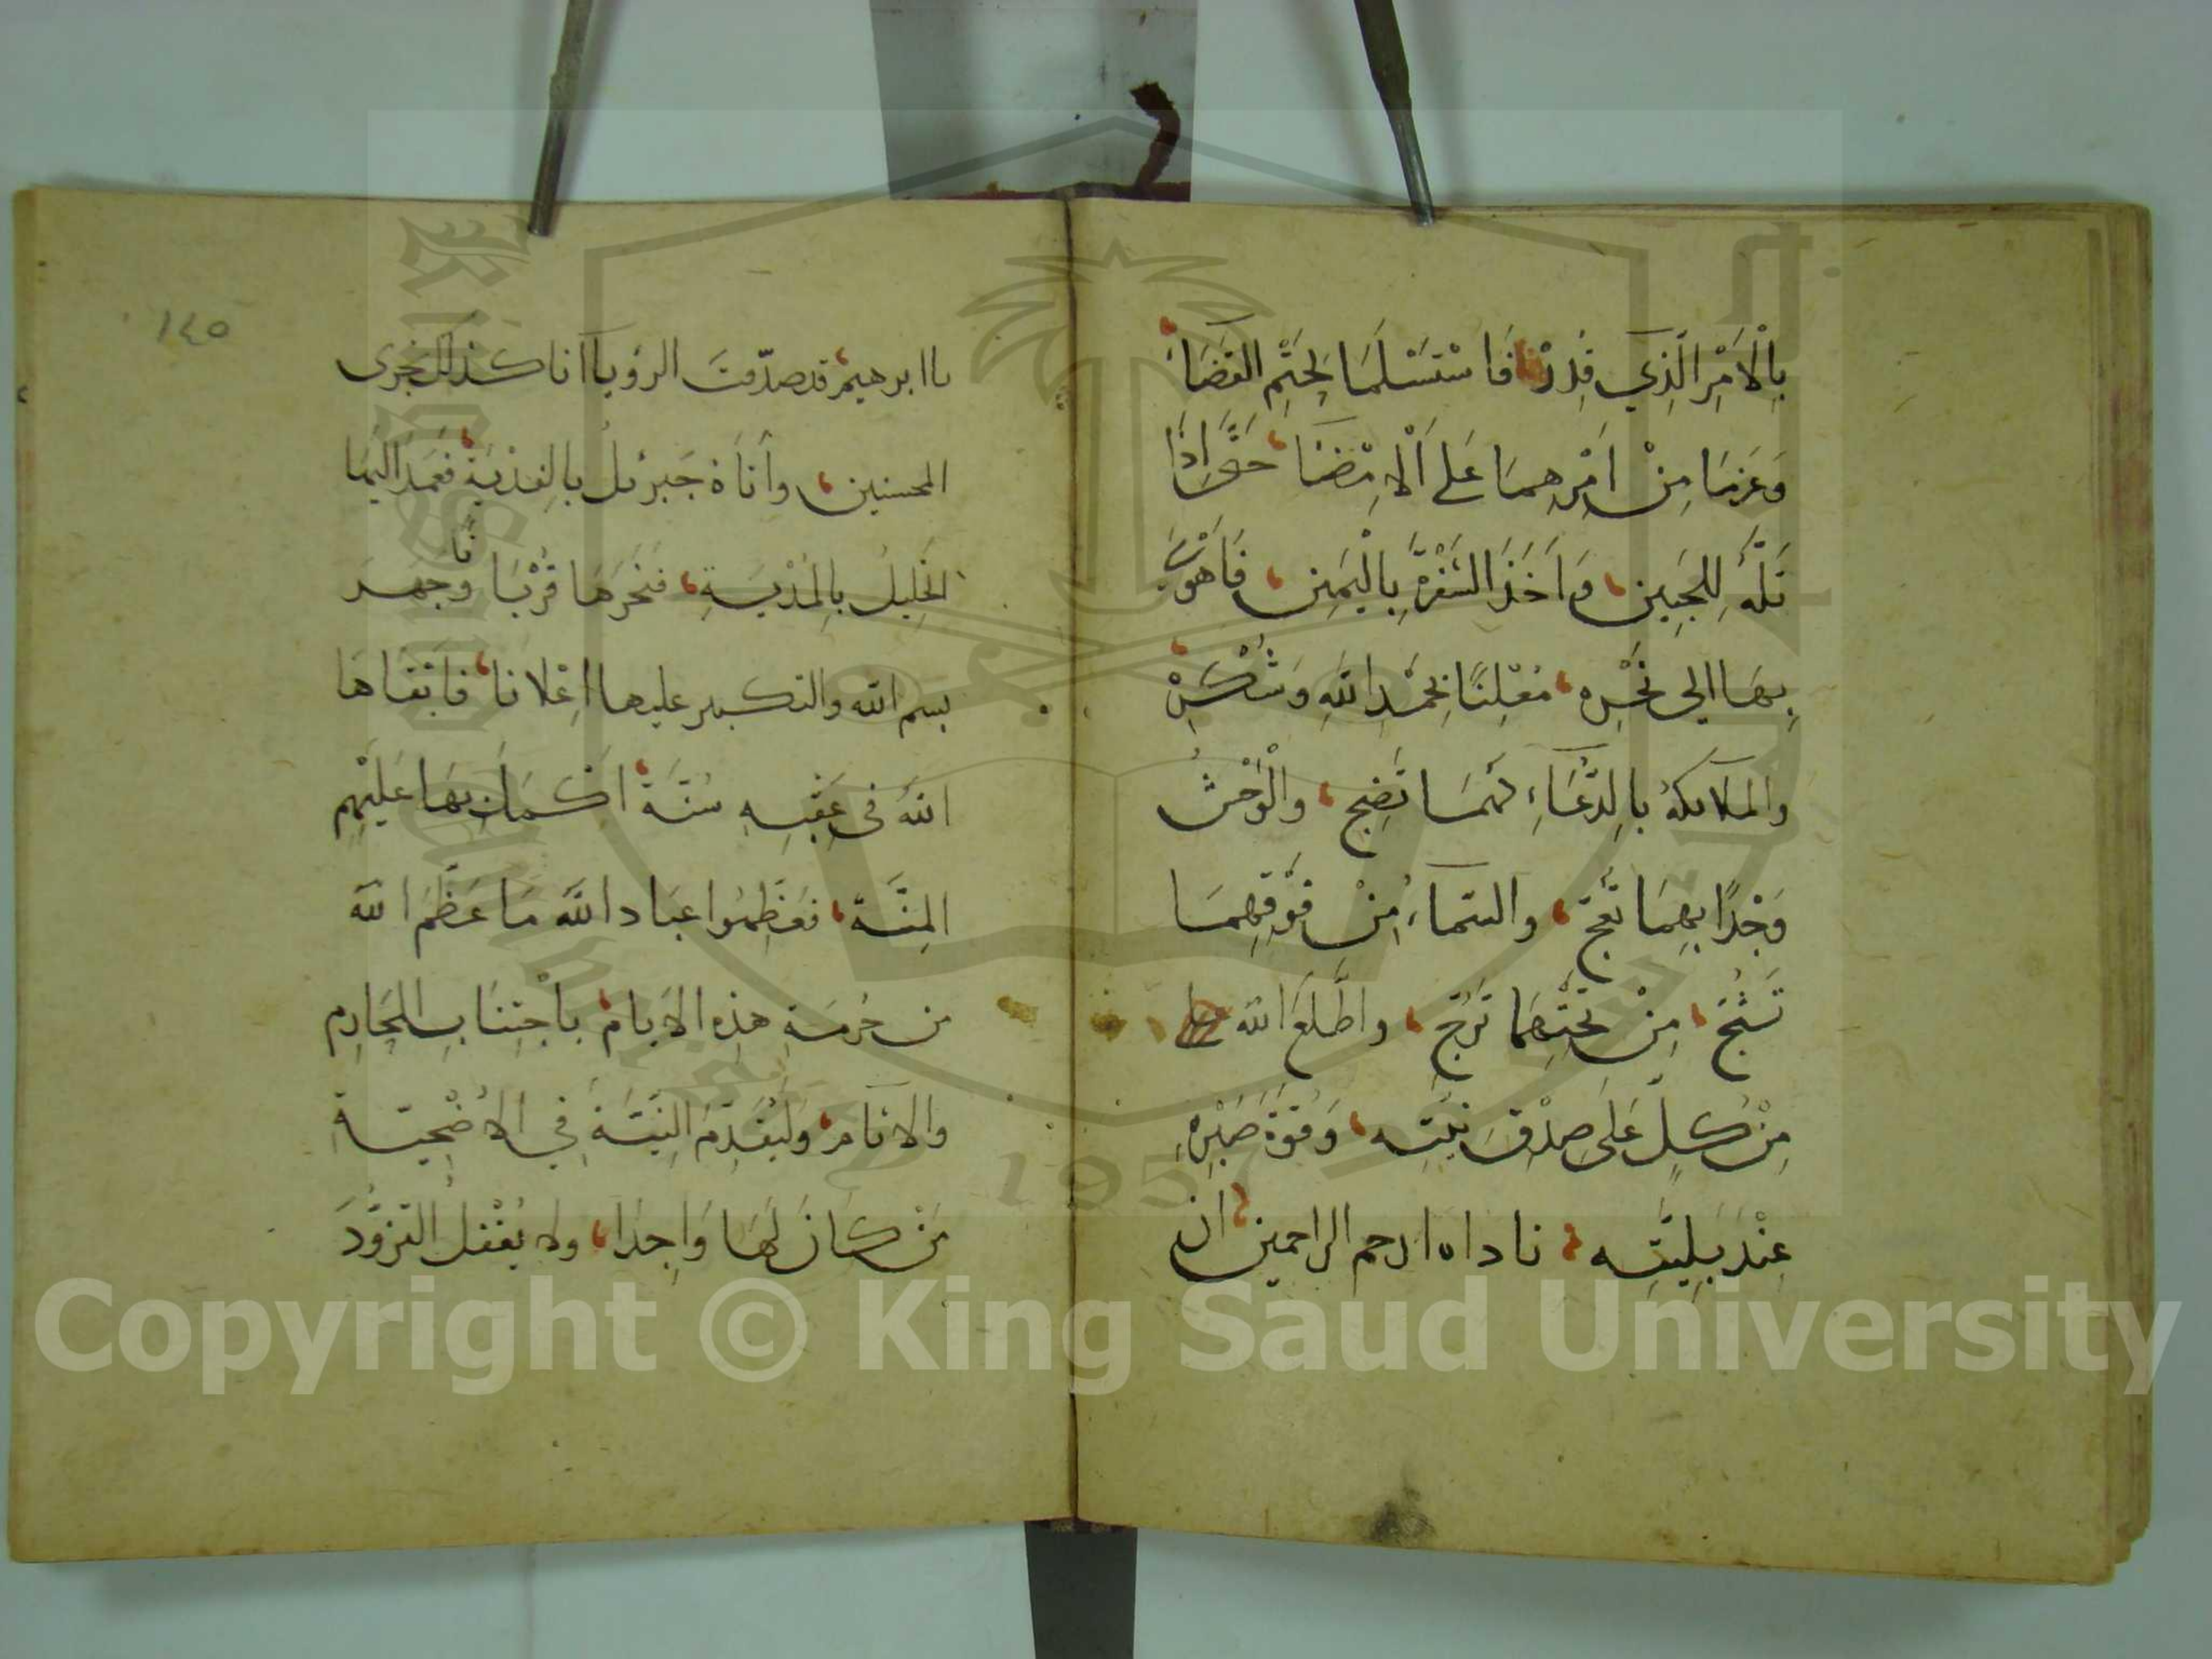 بِالْاَمْرِ الَّذِي قُدِّرْنَا فَاسْتَسْلَمَا لِحَتْمِ الْقَضَا
وَعَزَمَا مِنْ اَمْرِهِمَا عَلَى الْاِمْتِضَا حَتَّى اِذَا
تَلَّهُ لِلْجَبِينِ وَاَخَذَ الشَّفْرَةَ بِالْيَمِينِ فَاَهْوَى
بِهَا اِلَى نَحْرِهِ مُعْلِنًا بِحَمْدِ اللَّهِ وَشُكْرِهِ
والملائكةُ بالدُّعَاءِ لَهُمَا تَضِجُّ وَالْوَحْشُ
وَجْدًا بِهِمَا تَعِجُّ والسَّمَاءُ مِنْ فَوْقِهِمَا
تَشُجُّ مِنْ تَحْتِهِمَا تَرْتَجُّ واطَّلَعَ الله
مِنْ كُلٍّ عَلَى صِدْقِ نِيَّتِهِ وَقُوَّةِ صَبْرِهِ
عِنْدَ بَلِيَّتِهِ ناداه ارحم الراحمين ان
١٤٥
يا ابرهيم قد صدّقت الرؤيا انا كذلك نجزى
المحسنين وأتاهُ جَبرئيل بالفِدْيَةِ فعَمَدَ اليها
الخَلِيلُ بِالمُدْيَةِ فنَحَرَهَا قُرْبَانًا وجهر
بسم الله والتكبير عليها اِعْلانا فابقاها
اللهُ فى عَقِبِهِ سُنَّةً اكمل بِهَا عَلَيْهِم
المِنَّة فعَظِّمُوا عباد الله مَا عَظَّمَ الله
من حُرمَةِ هذِه الايام بِاجْتِنَابِ المحَارِمِ
والاثام وَلْيُقَدِّمَ النِّيَّةَ فِي الاُضْحِيَّةِ
مَنْ كَانَ لَهَا وَاجِدًا ولا يُغْفِل التَّزَوُّدَ
Copyright © King Saud University
1957